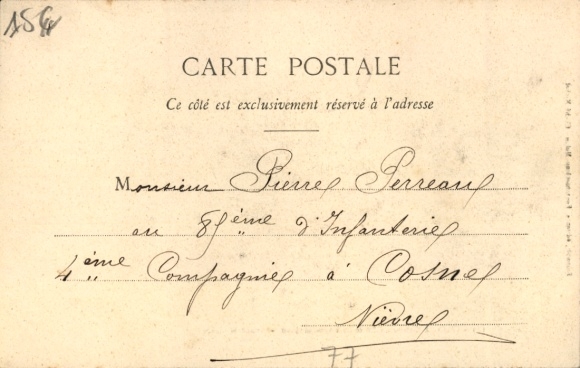 154
CARTE POSTALE
Ce côté est exclusivement réservé à l'adresse
Monsieur Pierre Perreau
au 85ème d'Infanterie
4ème Compagnie à Cosne
Nièvre
77